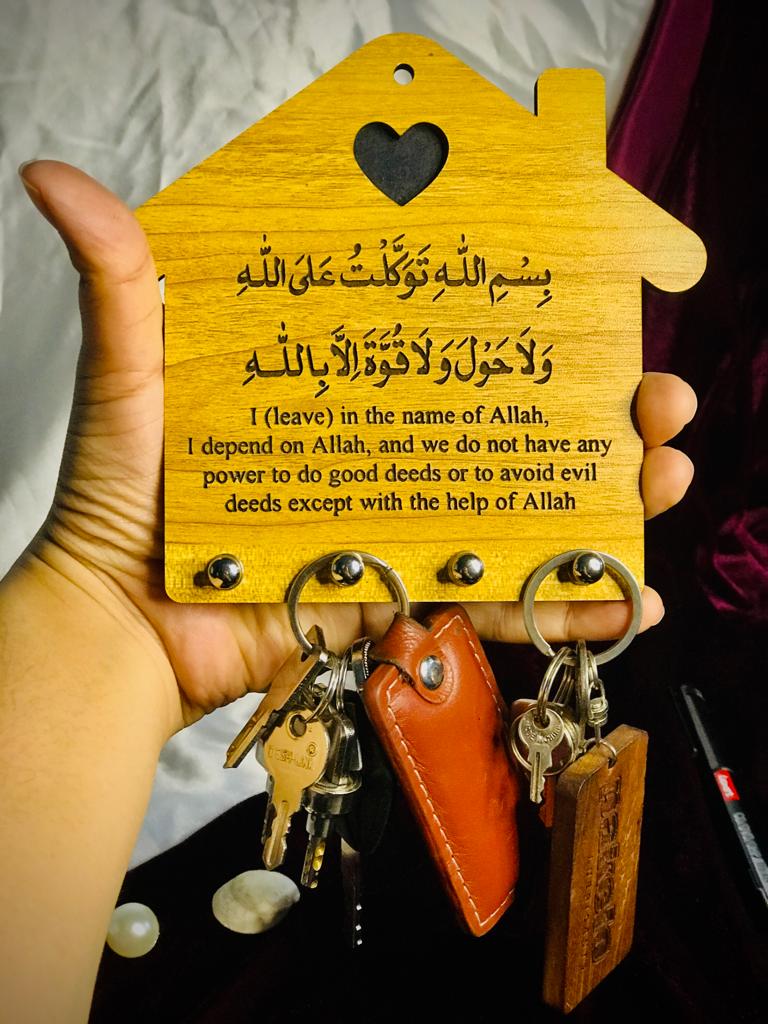 بِسْمِ اللّٰهِ تَوَكَّلْتُ عَلَى اللّٰهِ
وَلَا حَوْلَ وَلَا قُوَّةَ اِلَّا بِاللّٰهِ
I (leave) in the name of Allah,
I depend on Allah, and we do not have any
power to do good deeds or to avoid evil
deeds except with the help of Allah